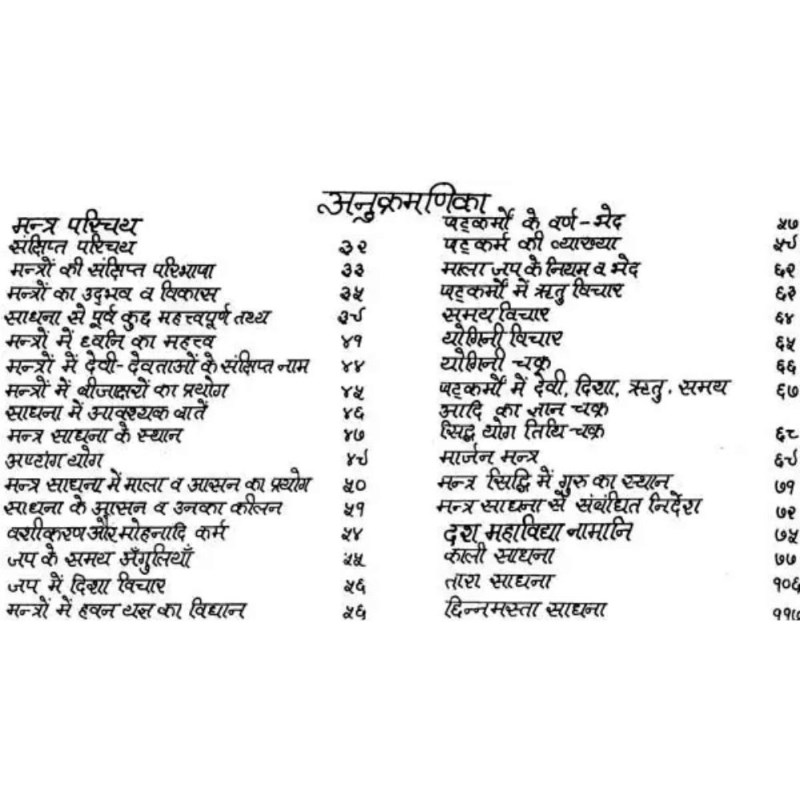 अनुक्रमणिका
मन्त्र परिचय
संक्षिप्त परिचय ३२
मन्त्रों की संक्षिप्त परिभाषा ३३
मन्त्रों का उद्‌भव व विकास ३५
साधना से पूर्व कुछ महत्त्वपूर्ण तथ्य ३९
मन्त्रों में ध्वनि का महत्त्व ४१
मन्त्रों में देवी-देवताओं के संक्षिप्त नाम ४४
मन्त्रों में बीजाक्षरों का प्रयोग ४५
साधना में आवश्यक बातें ४६
मन्त्र साधना के स्थान ४७
अष्टांग योग ४९
मन्त्र साधना में माला व आसन का प्रयोग ५०
साधना के आसन व उनका कीलन ५१
वशीकरण और मोहनादि कर्म ५४
जप के समय अँगुलियाँ ५५
जप में दिशा विचार ५६
मन्त्रों में हवन यज्ञ का विधान ५६
षट्कर्मों के वर्ण-भेद ५७
षट्कर्म की व्याख्या ५९
माला जप के नियम व भेद ६२
षट्कर्मों में ऋतु विचार ६३
समय विचार ६४
योगिनी विचार ६५
योगिनी चक्र ६६
षट्कर्मों में देवी, दिशा, ऋतु, समय ६७
आदि का ज्ञान चक्र
सिद्ध योग तिथि चक्र ६८
मार्जन मन्त्र ६९
मन्त्र सिद्धि में गुरु का स्थान ७१
मन्त्र साधना से संबंधित निर्देश ७२
दश महाविद्या नामानि ७५
काली साधना ७७
तारा साधना १०६
छिन्नमस्ता साधना ११७